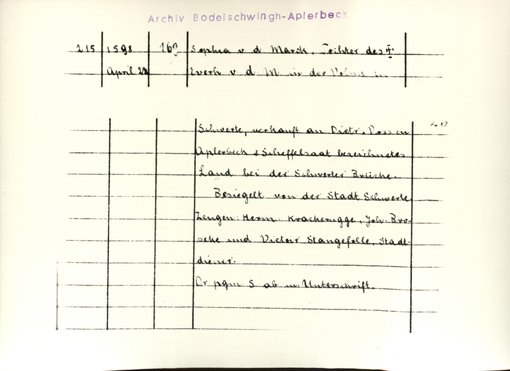 Archiv Bodelschwingh-Aplerbeck
215 1598 April 22 16 Sophia v. d. Mark, Tochter des †
Everh v. d. M in der
Schwerte, verkauft an Dietr.
Aplerbeck 2 Scheffelsaat bezeichnetes
Land bei der Schwerter Brücke.
Besiegelt von der Stadt Schwerte
Zeugen: Herm Krackerügge, Joh. Bro-
sche und Victor Stangefolle, Stadt-
diener.
Or pgm S. ab m Unterschrift.